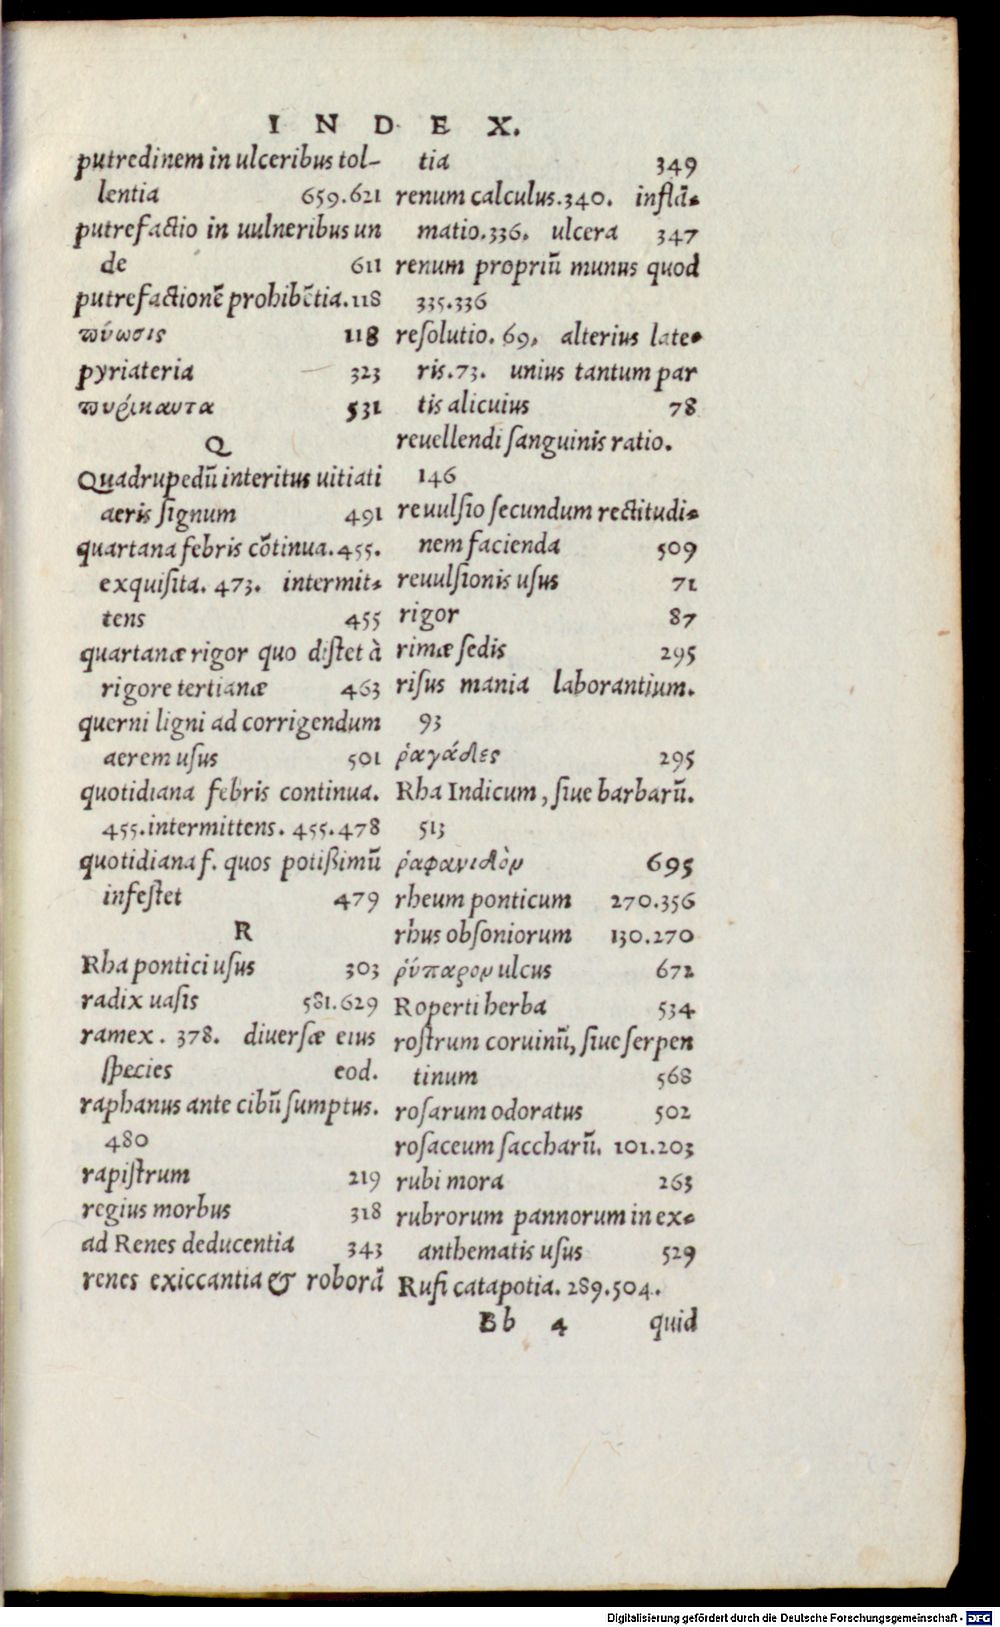 INDEX.
putredinem in ulceribus tol-
lentia 659.621
putrefactio in uulneribus un
de 611
putrefactionē prohibētia. 118
πύωσις 118
pyriateria 323
πυρίκαυτα 531
Q
Quadrupedū interitus uitiati
aeris ſignum 491
quartana febris cōtinua. 455.
exquiſita. 473. intermit-
tens 455
quartanæ rigor quo diſtet à
rigore tertianæ 463
querni ligni ad corrigendum
aerem uſus 501
quotidiana febris continua.
455. intermittens. 455.478
quotidiana f. quos potiſsimū
infeſtet 479
R
Rha pontici uſus 303
radix uaſis 581.629
ramex. 378. diuerſæ eius
ſpecies eod.
raphanus ante cibū ſumptus.
480
rapiſtrum 219
regius morbus 318
ad Renes deducentia 343
renes exiccantia & roborā
tia 349
renum calculus. 340. inflā-
matio. 336. ulcera 347
renum propriū munus quod
335.336
reſolutio. 69. alterius late-
ris. 73. unius tantum par
tis alicuius 78
reuellendi ſanguinis ratio.
146
reuulſio ſecundum rectitudi-
nem facienda 509
reuulſionis uſus 71
rigor 87
rimæ ſedis 295
riſus mania laborantium.
93
ῥαγάδες 295
Rha Indicum, ſiue barbarū.
513
ῥαφανιδὸν 695
rheum ponticum 270.356
rhus obſoniorum 130.270
ῥύπαρον ulcus 672
Roperti herba 534
roſtrum coruinū, ſiue ſerpen
tinum 568
roſarum odoratus 502
roſaceum ſaccharū. 101.203
rubi mora 263
rubrorum pannorum in ex-
anthematis uſus 529
Rufi catapotia. 289.504.
Bb 4 quid
Digitalisierung gefördert durch die Deutsche Forschungsgemeinschaft - DFG